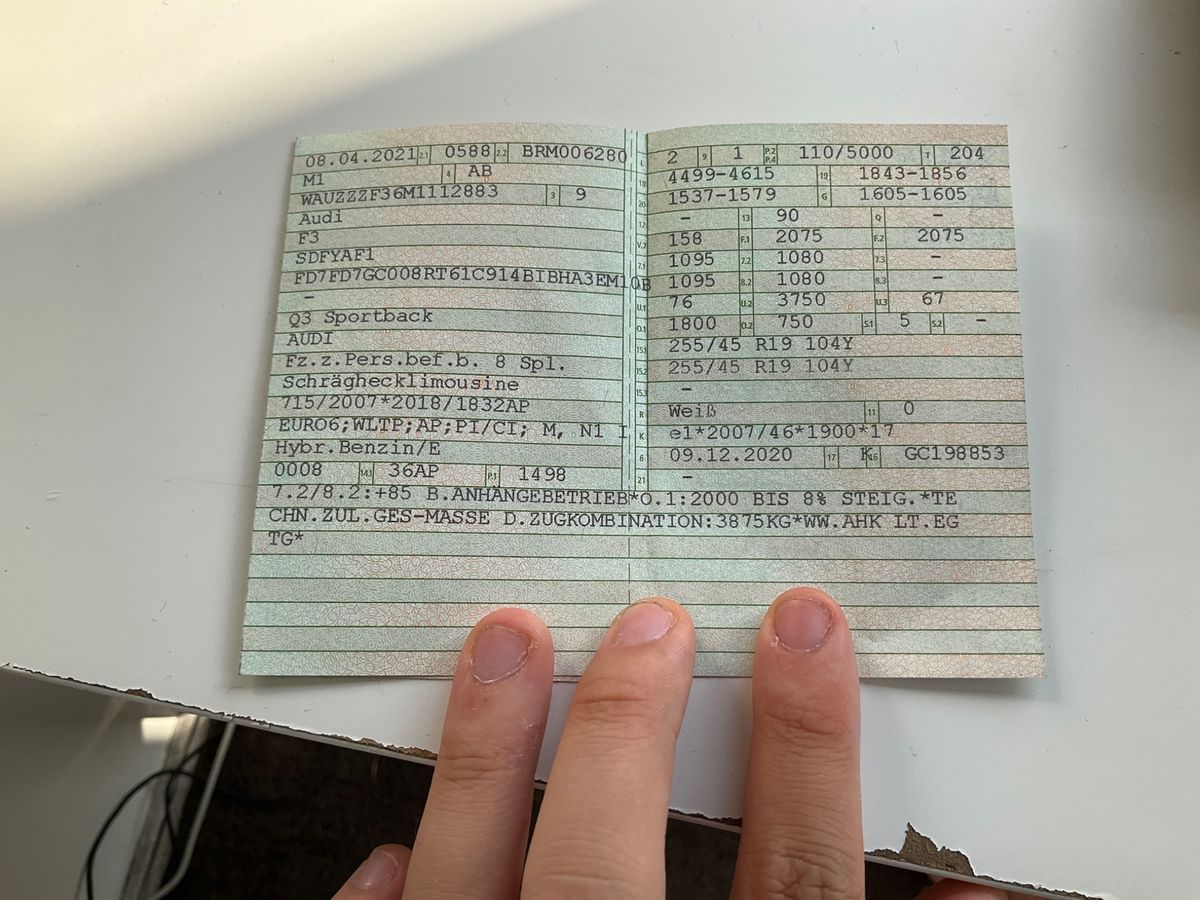 08.04.2021 2.1 0588 2.2 BRM006280
M1 4 AB
WAUZZZF36M1112883 3 9
Audi
F3
SDFYAF1
FD7FD7GC008RT61C914BIBHA3EM10B
–
Q3 Sportback
AUDI
Fz.z.Pers.bef.b. 8 Spl.
Schräghecklimousine
715/2007*2018/1832AP
EURO6;WLTP;AP;PI/CI; M, N1 I
Hybr.Benzin/E
0008 14.1 36AP P.1 1498
L 2 9 1 P.2 P.4 110/5000 T 204
18 4499-4615 19 1843-1856
20 1537-1579 G 1605-1605
12 – 13 90 Q –
V.7 158 F.1 2075 F.2 2075
7.1 1095 7.2 1080 7.3 –
8.1 1095 8.2 1080 8.3 –
U.1 76 U.2 3750 U.3 67
O.1 1800 O.2 750 S.1 5 S.2 –
15.1 255/45 R19 104Y
15.2 255/45 R19 104Y
15.3 –
R Weiß 11 0
K e1*2007/46*1900*17
6 09.12.2020 17 K 16 GC198853
21 –
7.2/8.2:+85 B.ANHÄNGEBETRIEB*O.1:2000 BIS 8% STEIG.*TE
CHN.ZUL.GES-MASSE D.ZUGKOMBINATION:3875KG*WW.AHK LT.EG
TG*